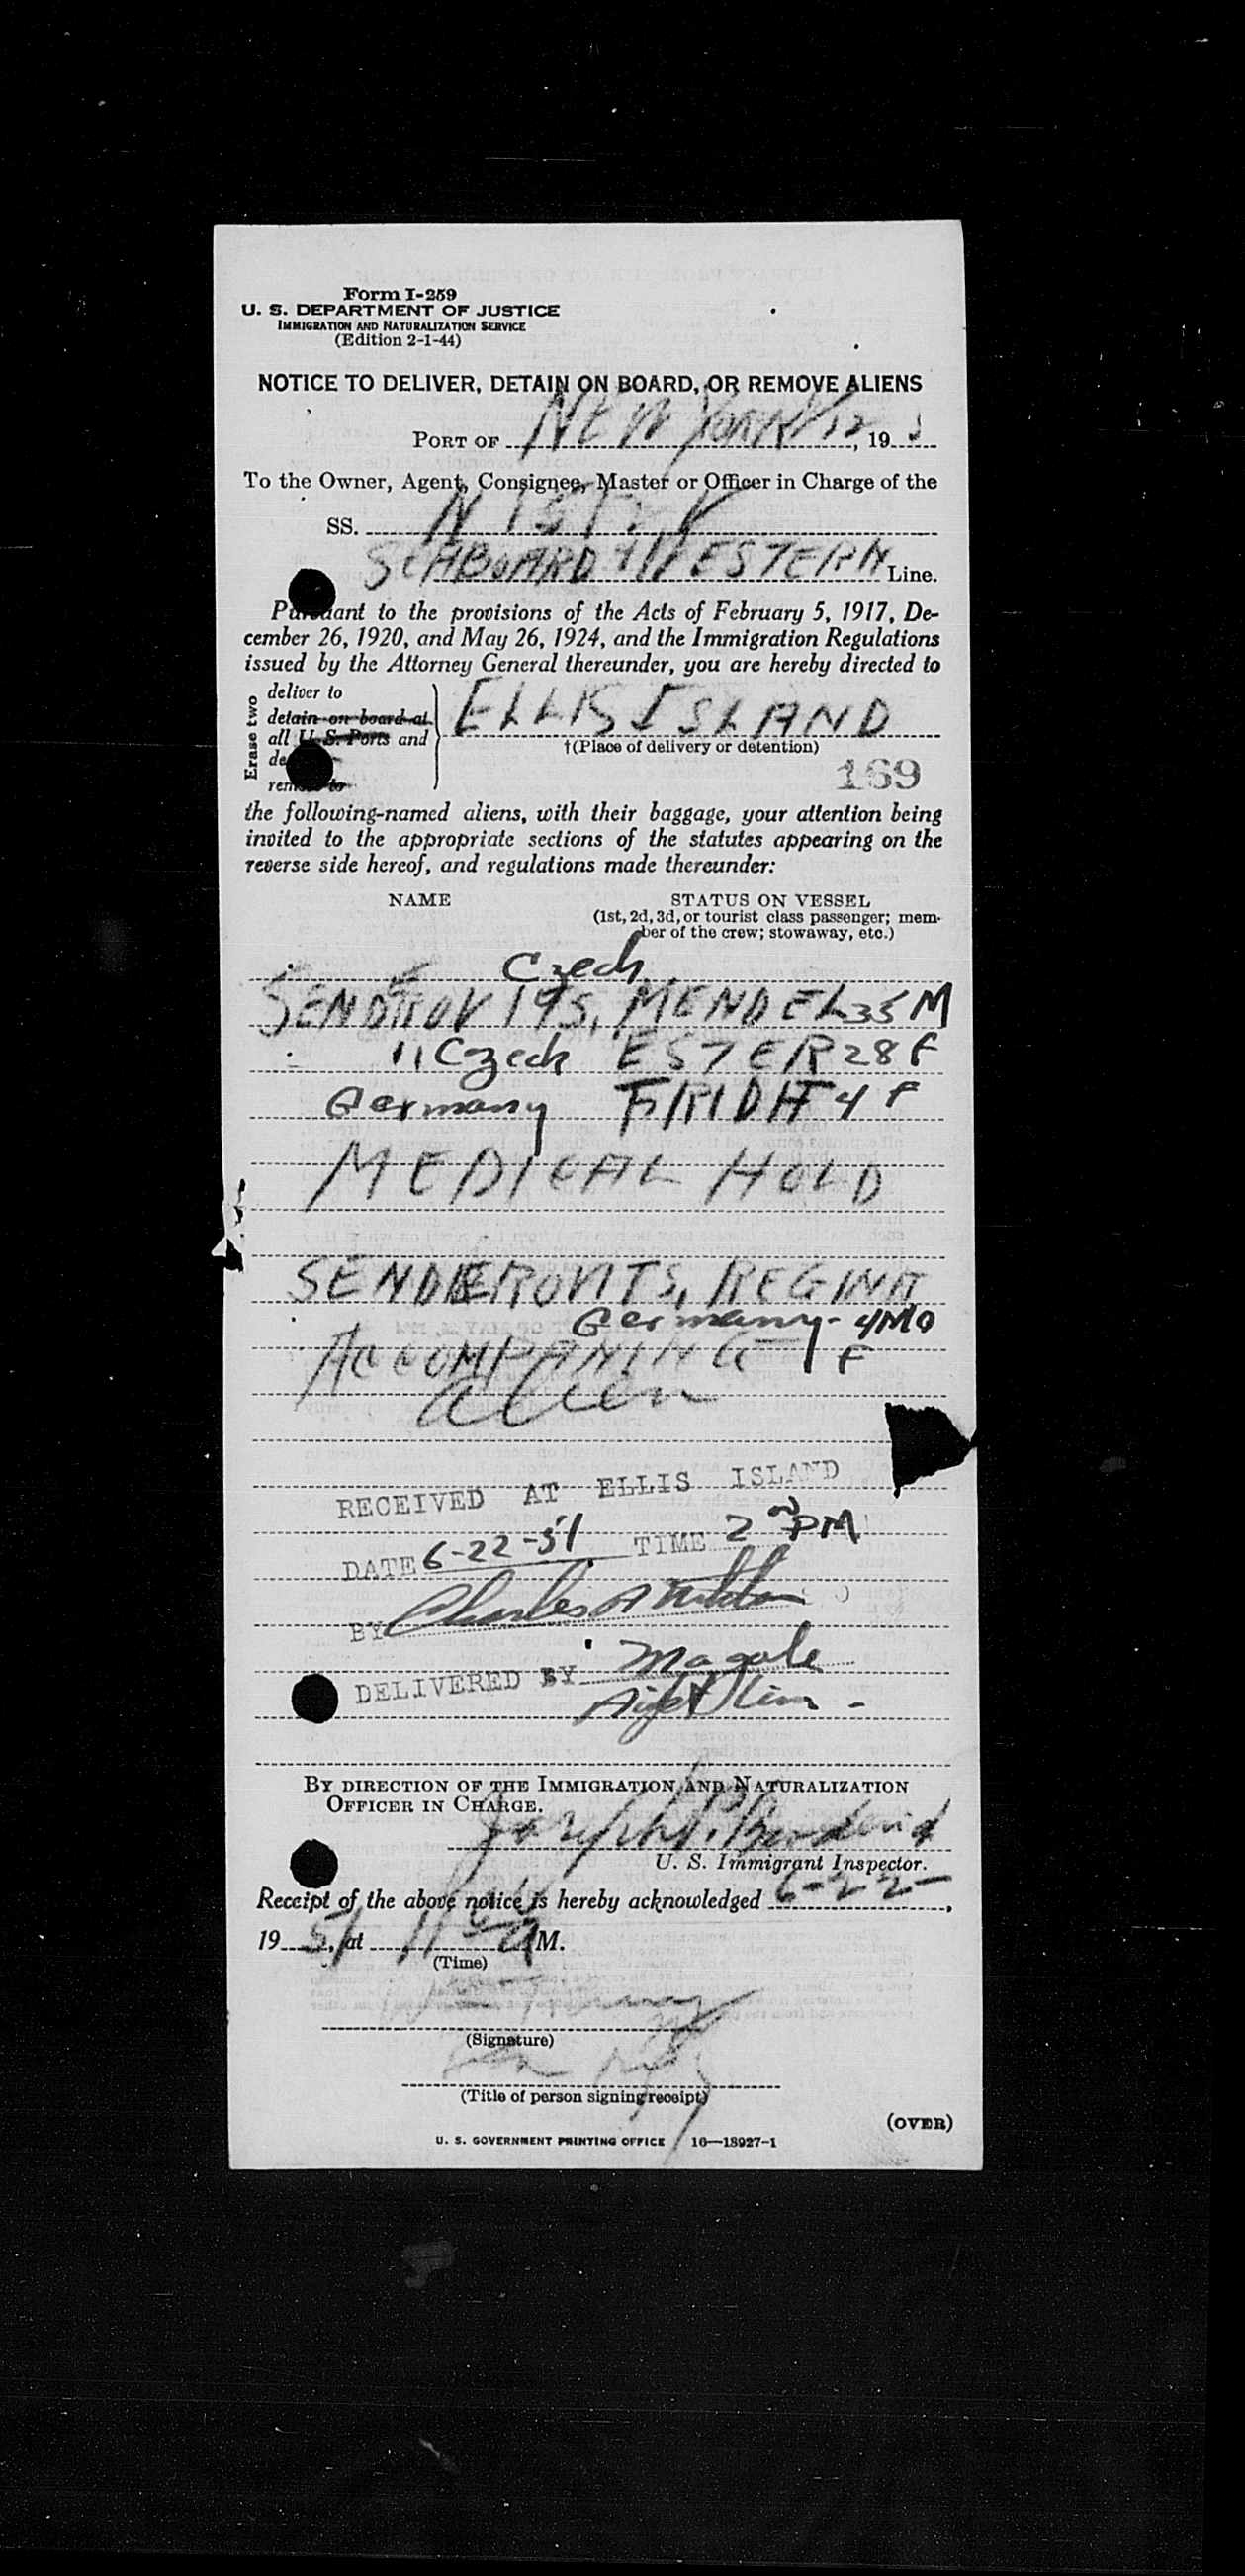 Form I-259
U. S. DEPARTMENT OF JUSTICE
IMMIGRATION AND NATURALIZATION SERVICE
(Edition 2-1-44)
NOTICE TO DELIVER, DETAIN ON BOARD, OR REMOVE ALIENS
PORT OF NEW YORK, 19
To the Owner, Agent, Consignee, Master or Officer in Charge of the
SS. N
SEABOARD & WESTERN Line.
Pursuant to the provisions of the Acts of February 5, 1917, De-
cember 26, 1920, and May 26, 1924, and the Immigration Regulations
issued by the Attorney General thereunder, you are hereby directed to
Erase two
deliver to
detain on board at
all U. S. Ports and
ELLIS ISLAND
†(Place of delivery or detention)
169
the following-named aliens, with their baggage, your attention being
invited to the appropriate sections of the statutes appearing on the
reverse side hereof, and regulations made thereunder:
NAME STATUS ON VESSEL
(1st, 2d, 3d, or tourist class passenger; mem-
ber of the crew; stowaway, etc.)
Czech
MENDEL 35 M
" Czech ESTER 28 F
Germany FRIDA 4 F
MEDICAL HOLD
SENDEROVITS, REGINA
Germany - 4 MO
ACCOMPANING F
alien
RECEIVED AT ELLIS ISLAND
DATE 6-22-51 TIME 2 PM
BY Charles A
DELIVERED BY
BY DIRECTION OF THE IMMIGRATION AND NATURALIZATION
OFFICER IN CHARGE.
Joseph
U. S. Immigrant Inspector.
Receipt of the above notice is hereby acknowledged 6-22-,
19 51, at 11 AM.
(Time)
(Signature)
(Title of person signing receipt)
(OVER)
U. S. GOVERNMENT PRINTING OFFICE 16—18927-1